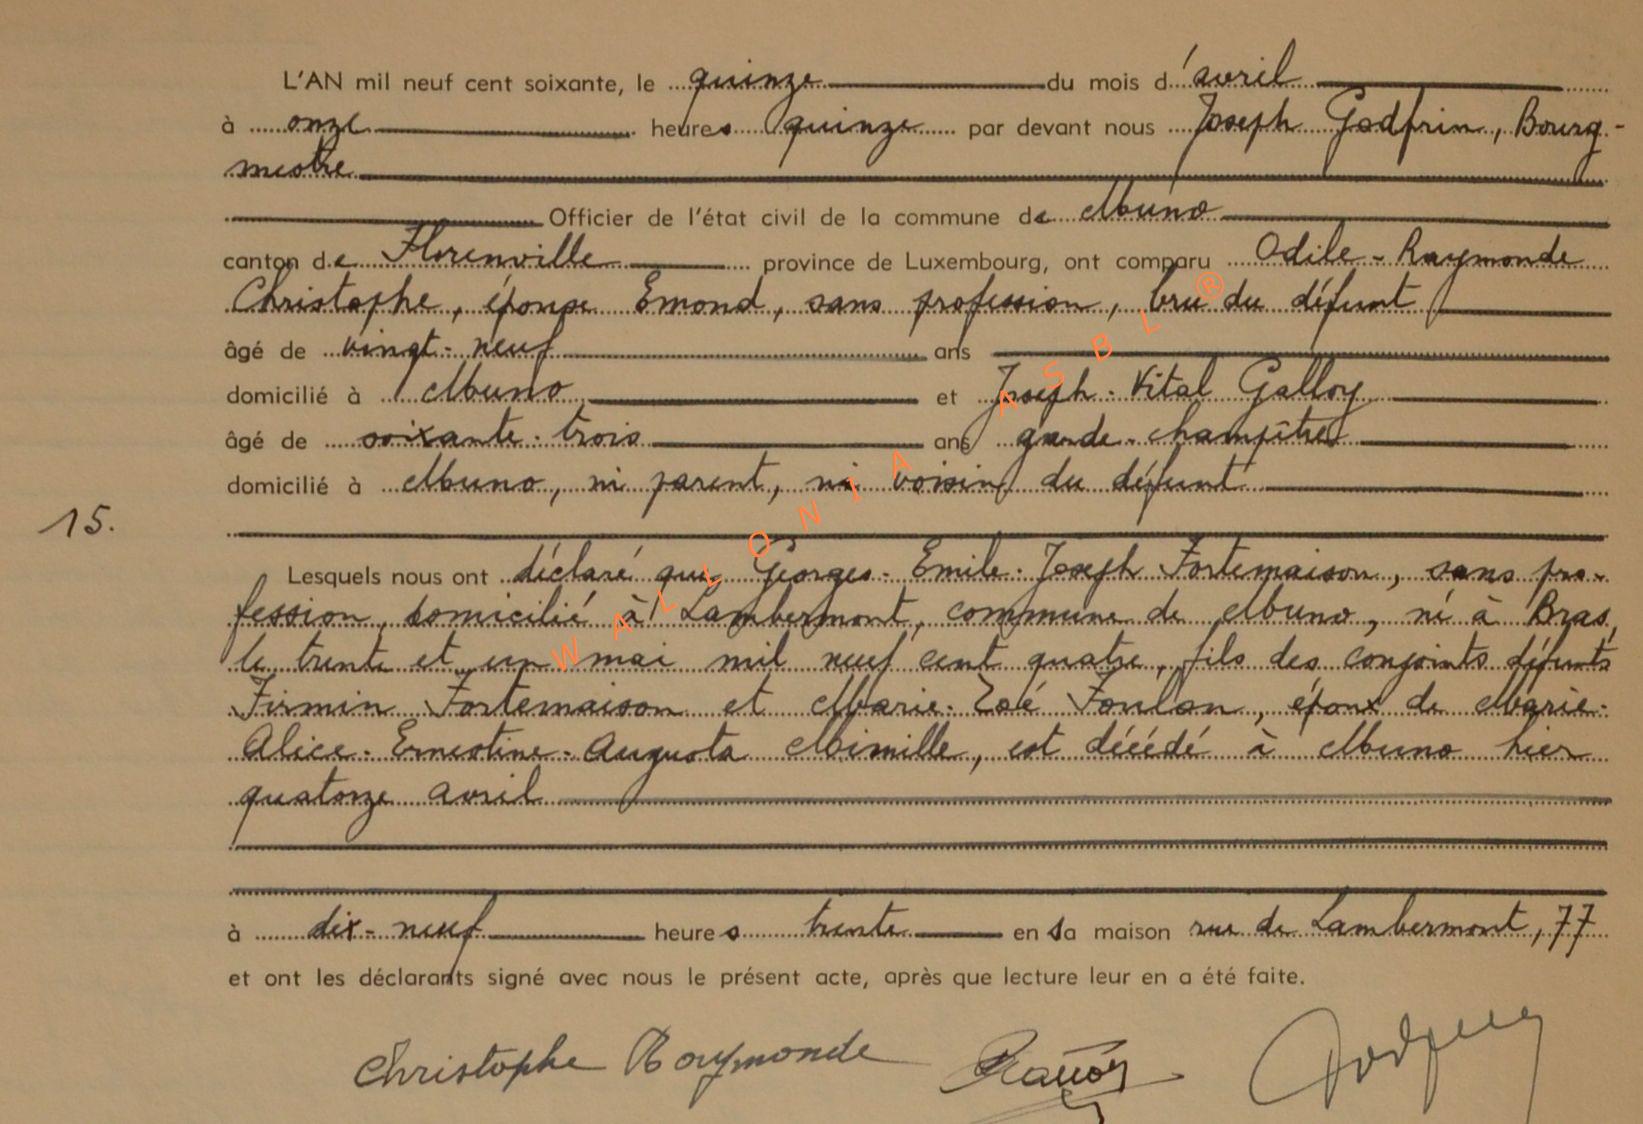 L'AN mil neuf cent soixante, le quinze du mois d'avril
à onze heures quinze par devant nous Joseph Godfrin, Bourg-
mestre
Officier de l'état civil de la commune de Muno
canton de Florenville province de Luxembourg, ont comparu Odile-Raymonde
Christophe, épouse Emond, sans profession, bru du défunt
âgé de vingt-neuf ans
domicilié à Muno et Joseph-Vital Galloy
âgé de soixante-trois ans garde-champêtre
domicilié à Muno, ni parent, ni voisin du défunt
15.
Lesquels nous ont déclaré que Georges-Emile-Joseph Fortemaison, sans pro-
fession, domicilié à Lambermont, commune de Muno, né à Bras,
le trente et un mai mil neuf cent quatre, fils des conjoints défunts
Firmin Fortemaison et Marie-Zoé Foulon, époux de Marie-
Alice-Ernestine-Augusta Mimille, est décédé à Muno hier
quatorze avril
à dix-neuf heures trente en sa maison rue de Lambermont, 77
et ont les déclarants signé avec nous le présent acte, après que lecture leur en a été faite.
Christophe Raymonde
WALLONIA ASBL ®